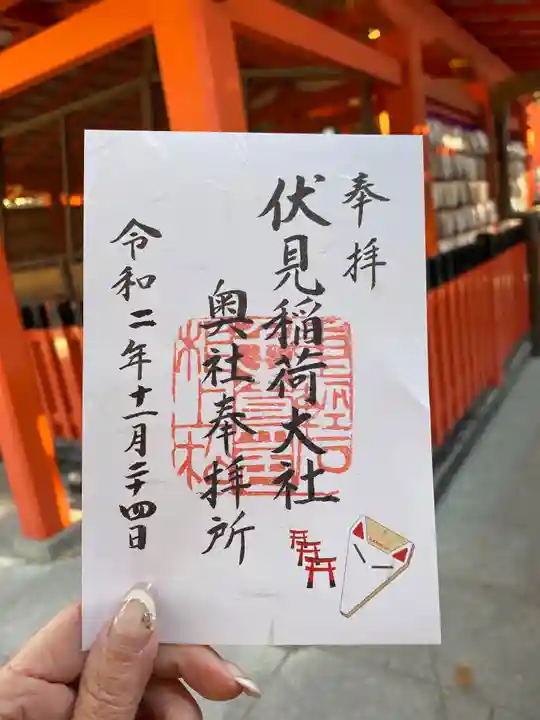 奉拝
伏見稲荷大社
奥社奉拝所
令和二年十一月二十四日